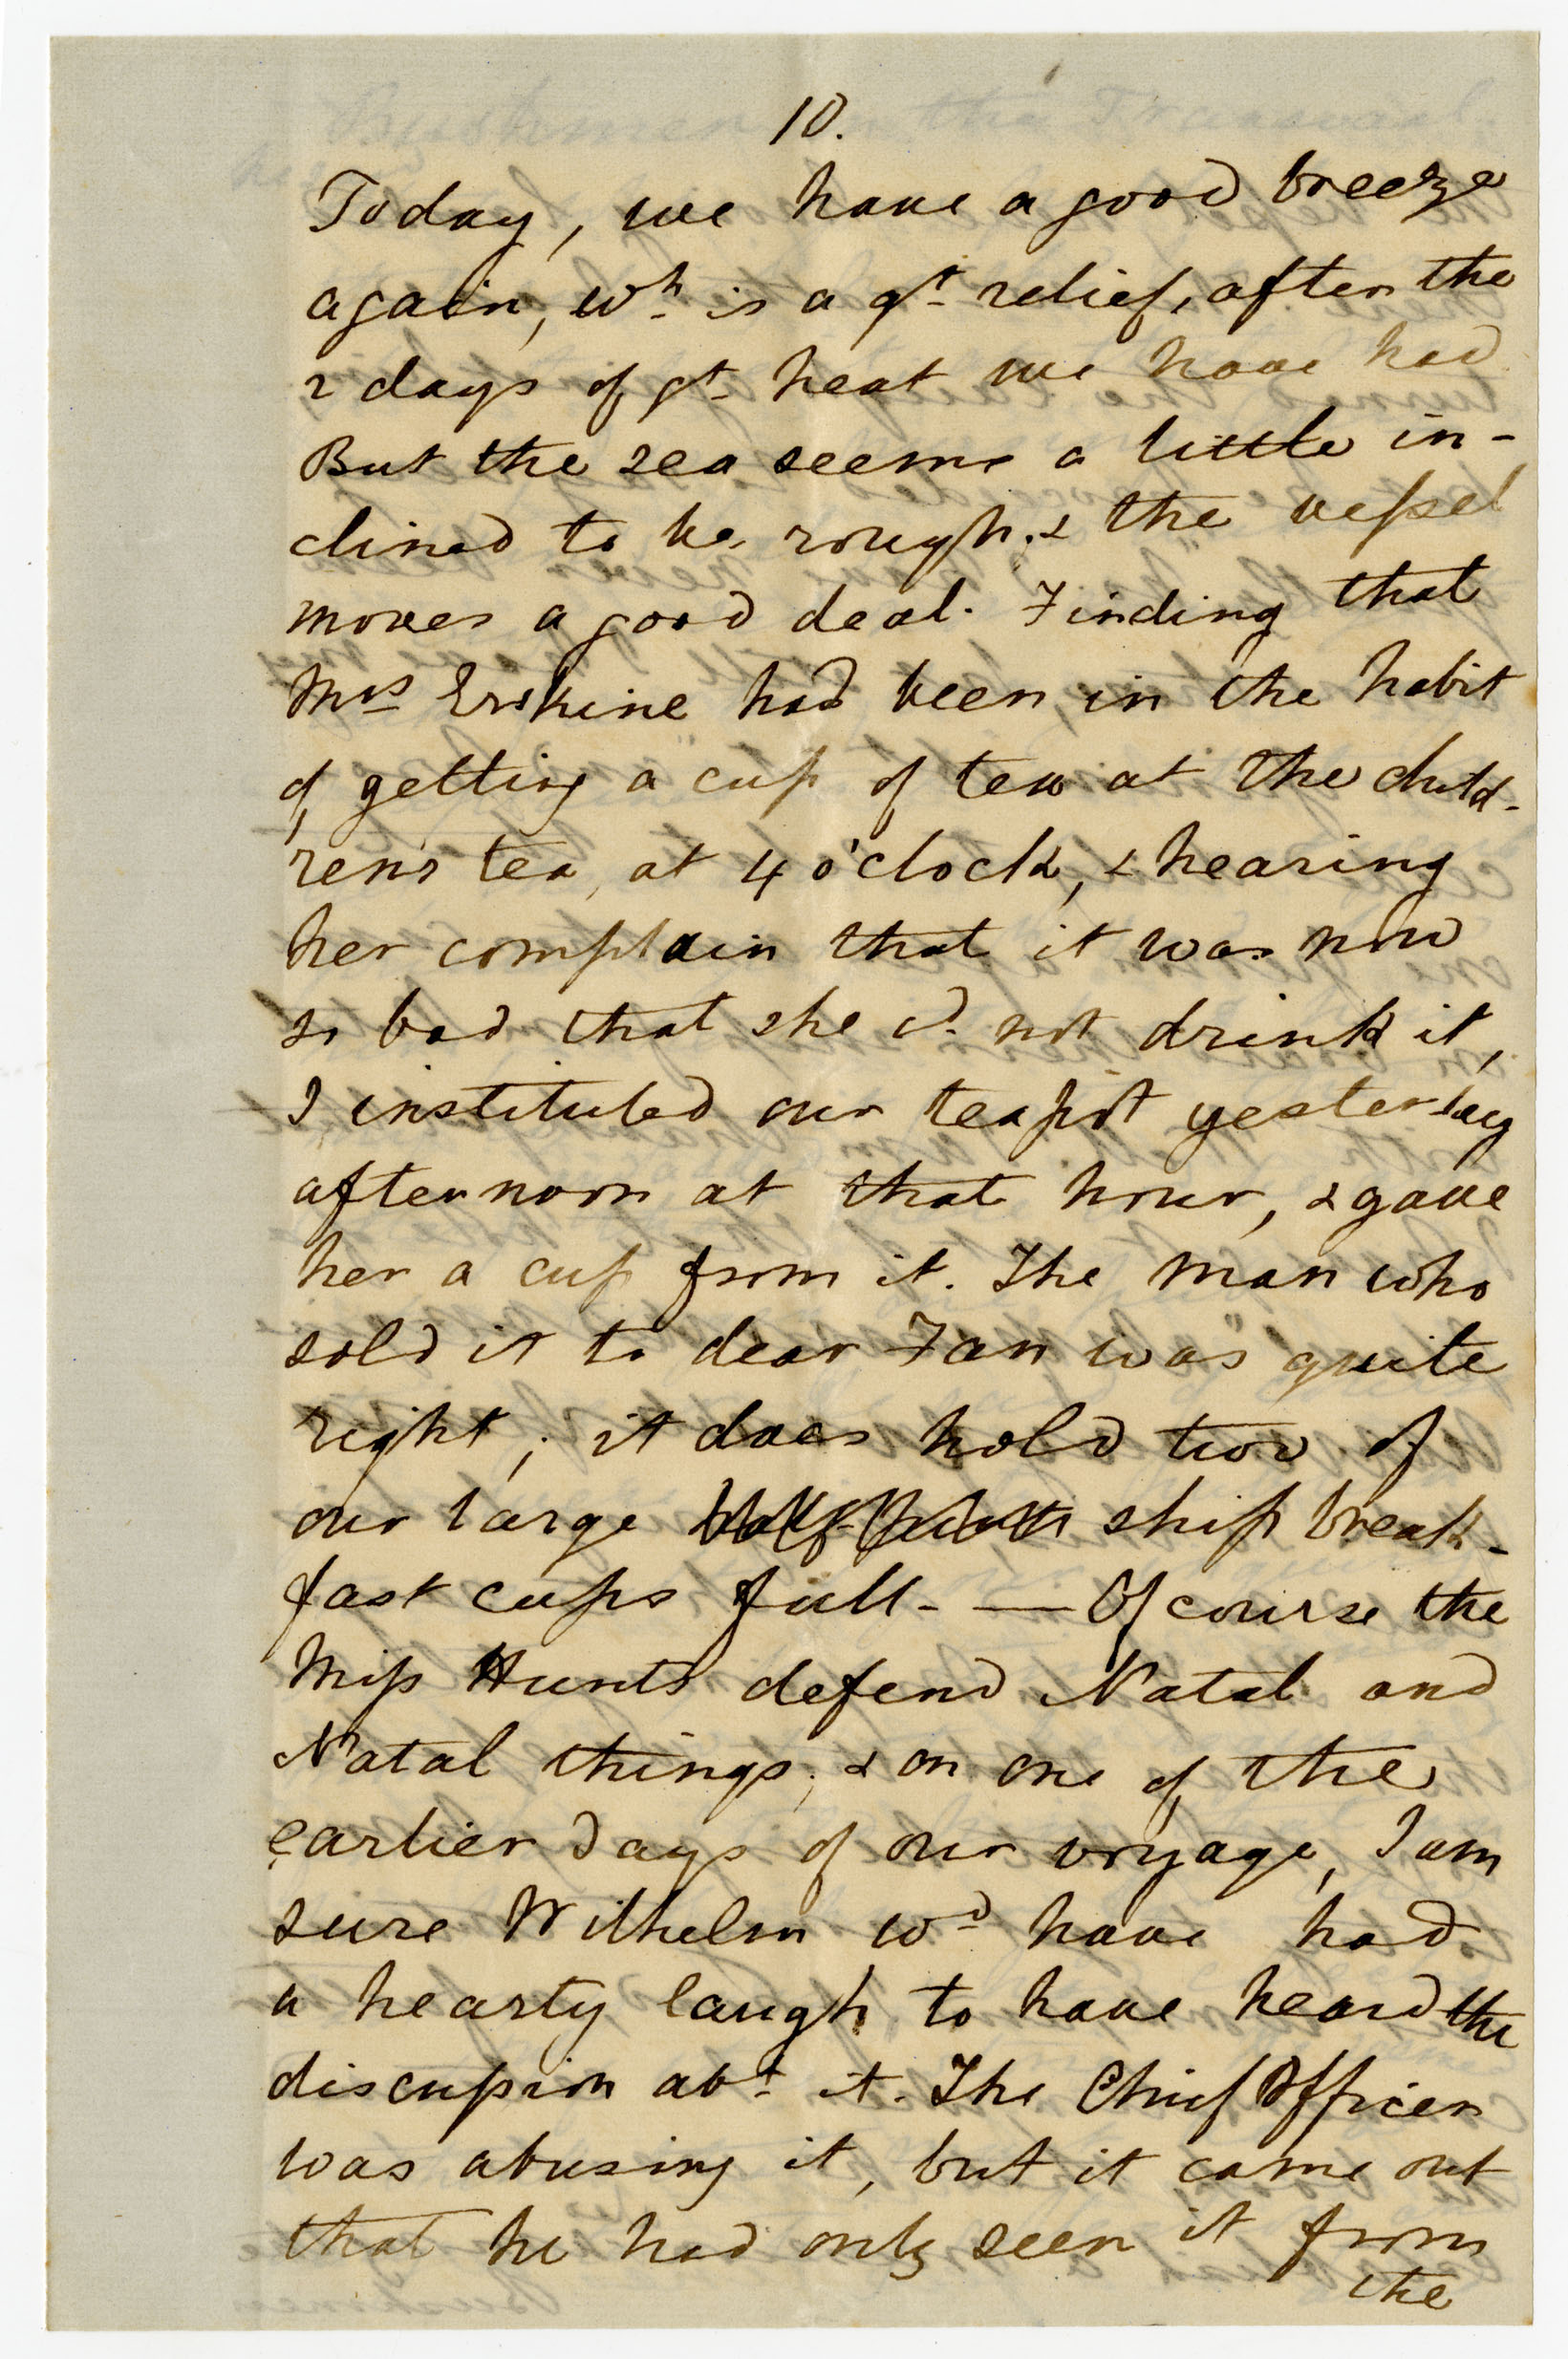 10.
Today, we have a good breeze
again, wh. is a gt. relief, after the
2 days of gt. heat we have had.
But the sea seems a little in-
clined to be rough, & the vessel
moves a good deal. Finding that
Mrs Erskine had been in the habit
of getting a cup of tea at the child-
ren's tea, at 4 o'clock, & hearing
her complain that it was now
so bad that she cd. not drink it,
I instituted our teapot yesterday
afternoon at that hour, & gave
her a cup from it. The man who
sold it to dear Fan was quite
right; it does hold two of
our large ship break-
fast cups full. — Of course the
Miss Hunts defend Natal and
Natal things; & on one of the
earlier days of our voyage, I am
sure Wilhelm wd have had
a hearty laugh to have heard the
discussion abt. it. The Chief Officer
was abusing it, but it came out
that he had only seen it from
the